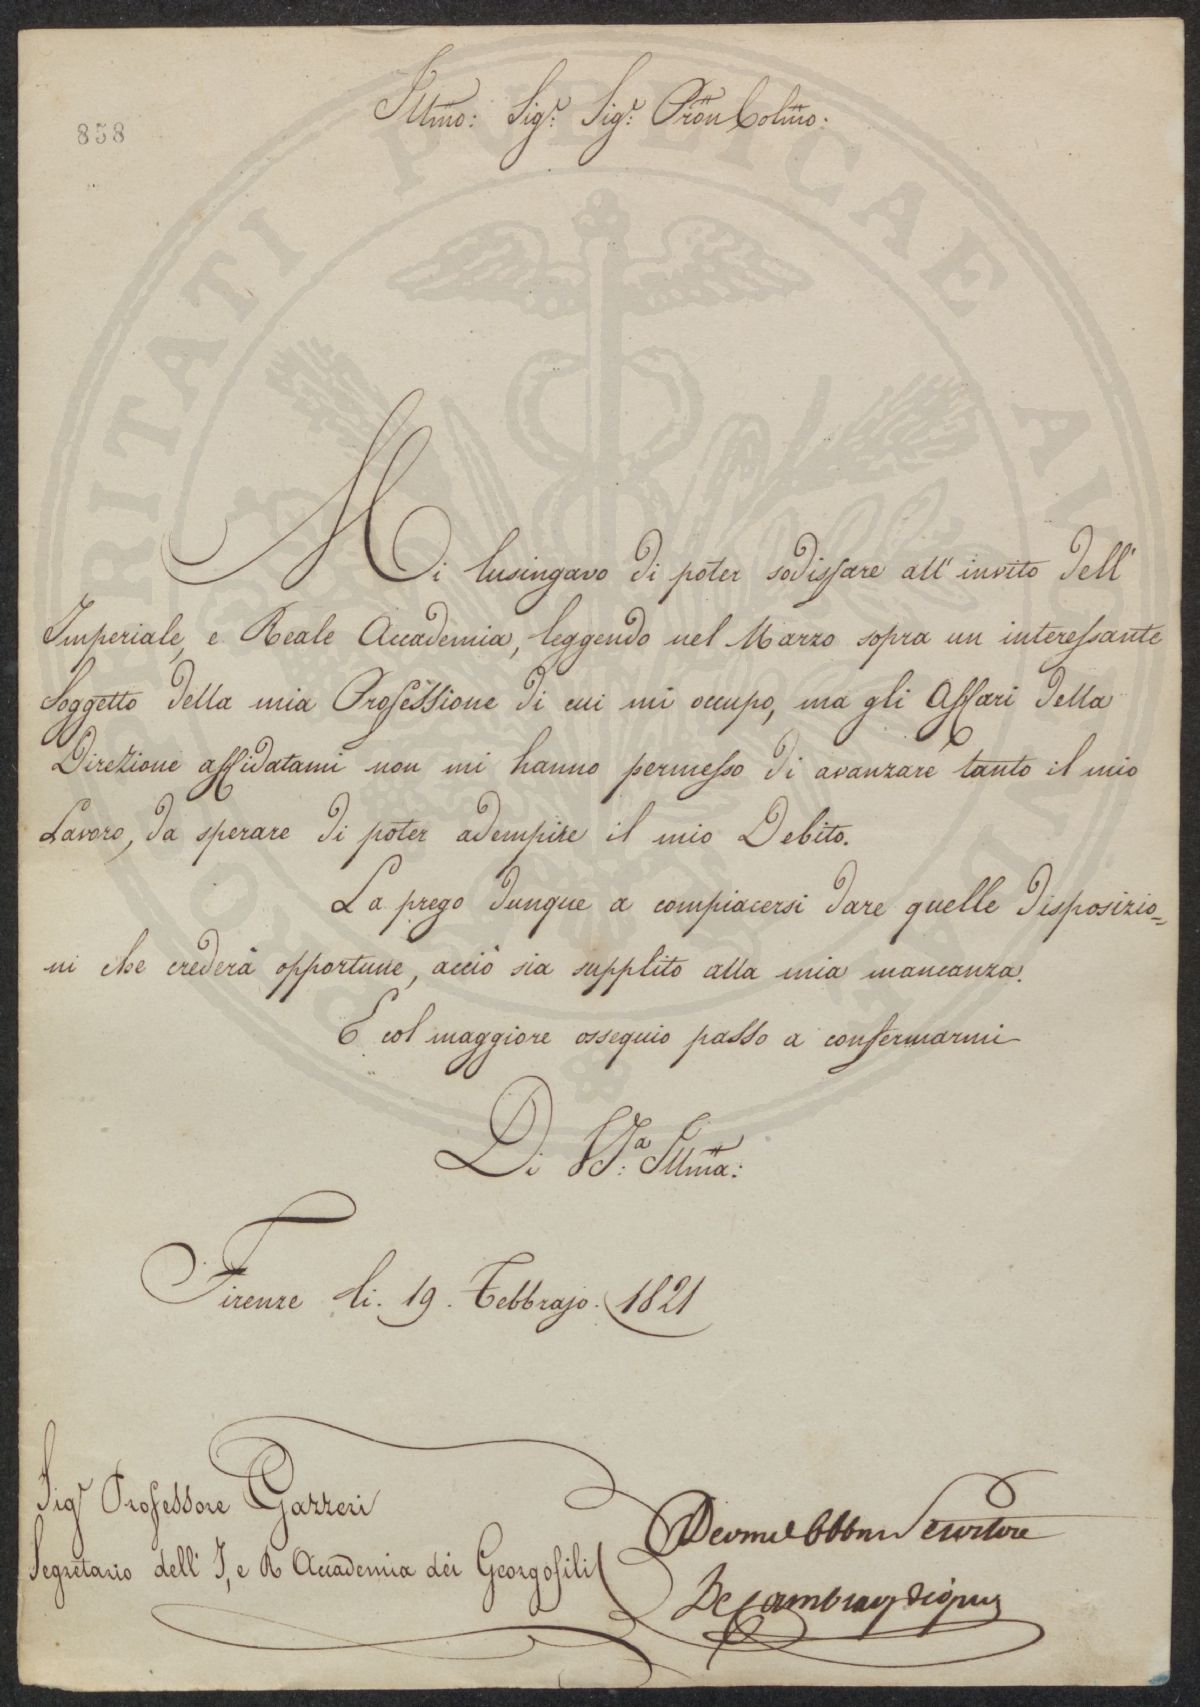 858
Illmo: Sigr: Sigr: Pron Colmo:
Mi lusingavo di poter sodisfare all' invito dell'
Imperiale, e Reale Accademia, leggendo nel Marzo sopra un interessante
Soggetto della mia Professione di cui mi occupo, ma gli Affari della
Direzione affidatami non mi hanno permesso di avanzare tanto il mio
Lavoro, da sperare di poter adempire il mio Debito.
La prego dunque a compiacersi dare quelle disposizio=
ni che crederà opportune, acciò sia supplito alla mia mancanza.
E col maggiore ossequio passo a confermarmi
Di VSa: Illma:
Firenze li. 19. Febbrajo. 1821
Sigr Professore Gazzeri
Segretario dell' I, e R Accademia dei Georgofili
Servitore
De Cambray Digny
PROSPERITATI PUBLICAE AUGENDAE